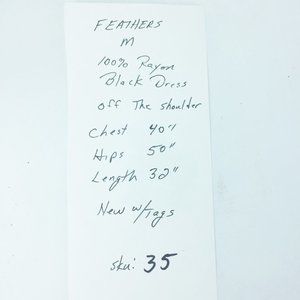 FEATHERS
M
100% Rayon
Black Dress
off The shoulder
Chest 40"
Hips 50"
Length 32"
New w/Tags
sku: 35